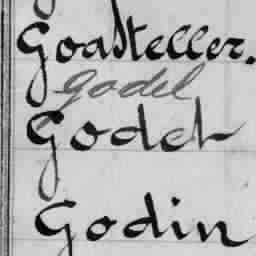 Goasteller.
Godel
Godet
Godin